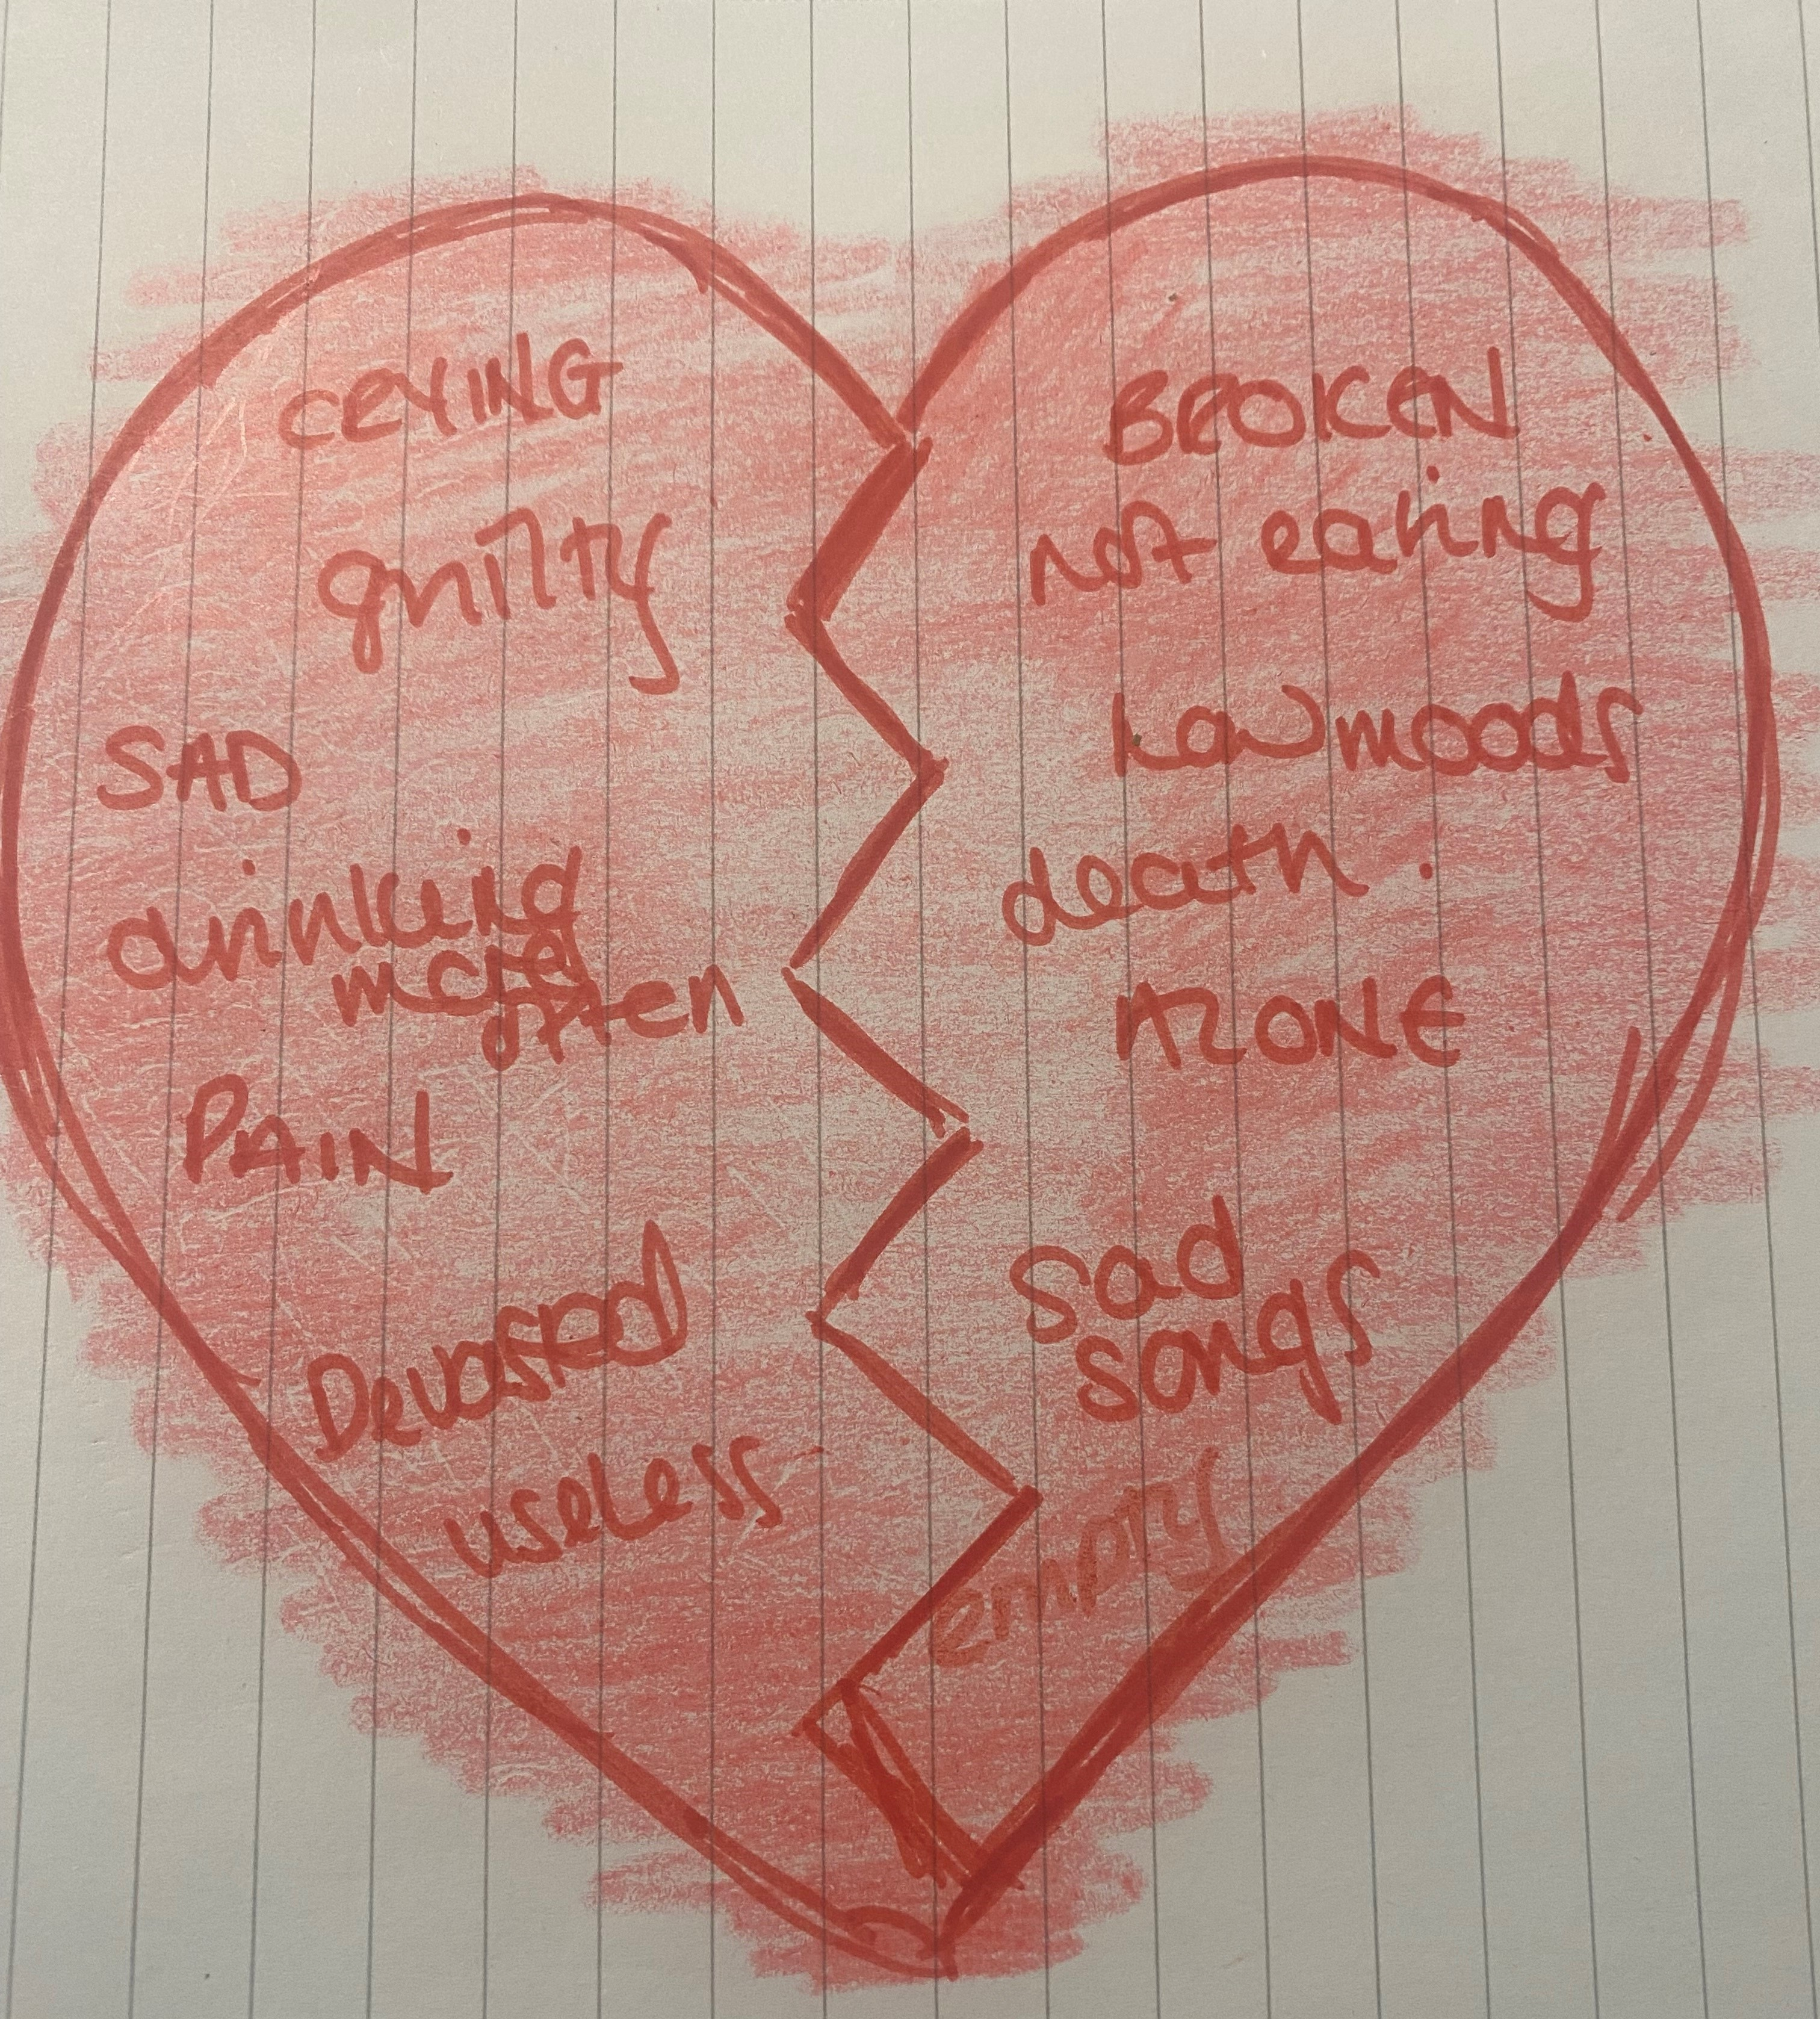 CRYING
guilty
SAD
drinking
more
often
PAIN
Devasted
useless
BROKEN
not eating
Low moods
death.
ALONE
Sad
songs
empty